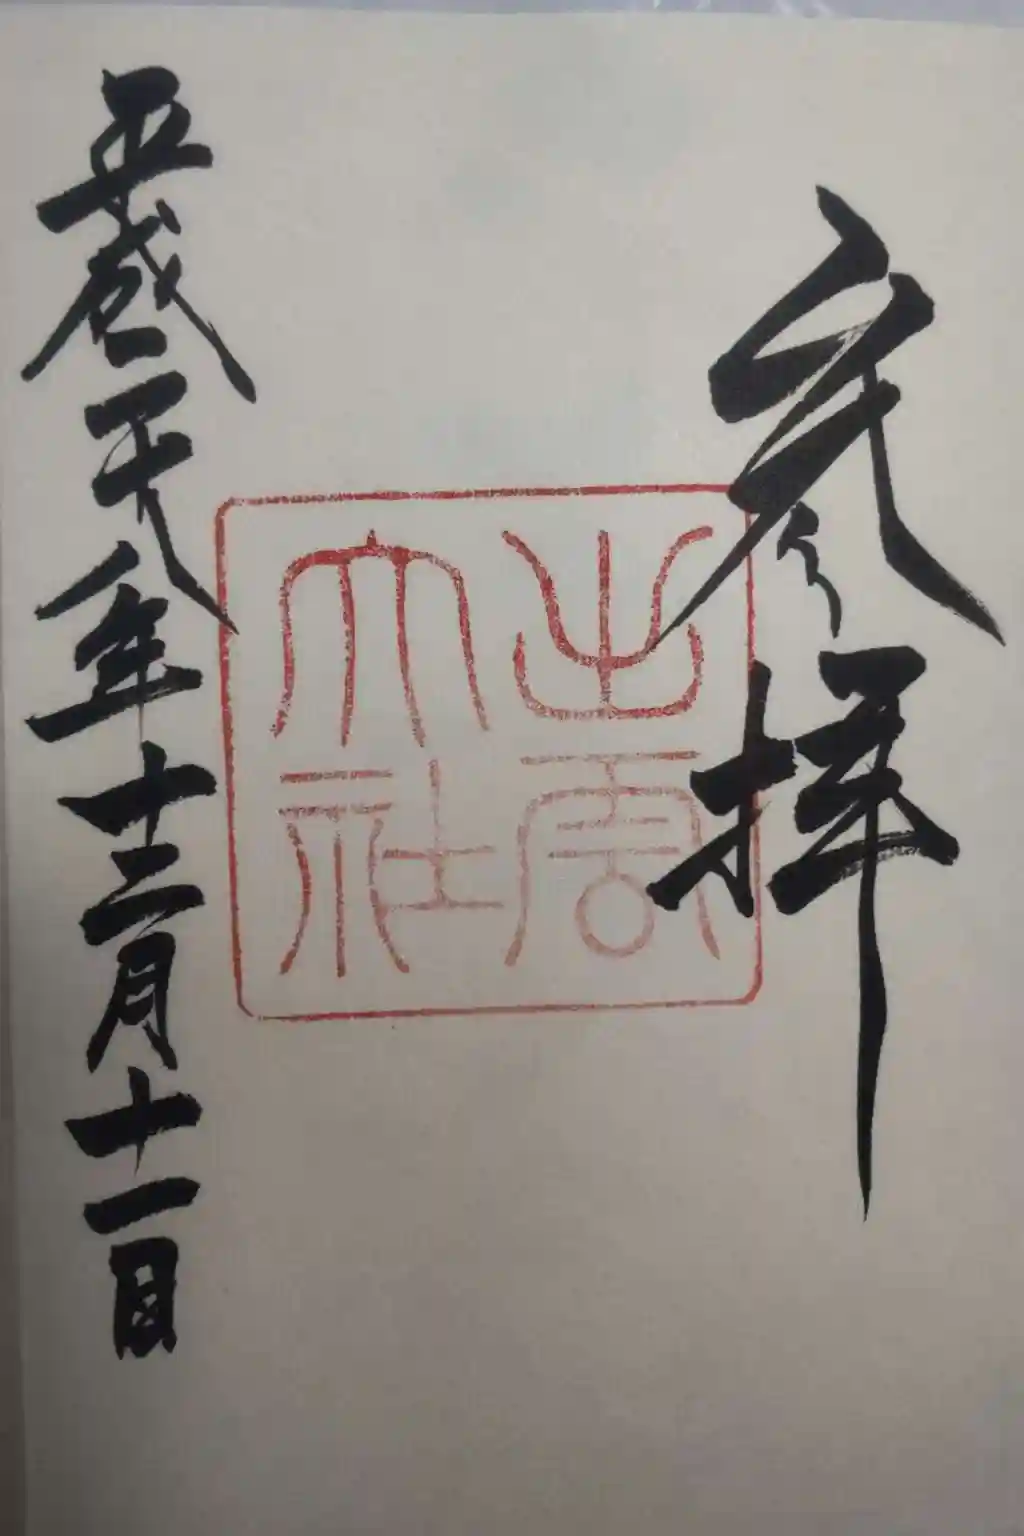 参拝
出雲
大社
平成二十八年十二月十一日